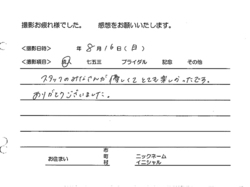 撮影お疲れ様でした。 感想をお願いいたします。
<撮影日時> 年 8月 16日(日)
<撮影項目> 七五三 ブライダル 記念 その他
スタッフのみなさんが優しくてとても楽しかったです。
ありがとうございました。
お住まい 市 町 村 ニックネーム イニシャル